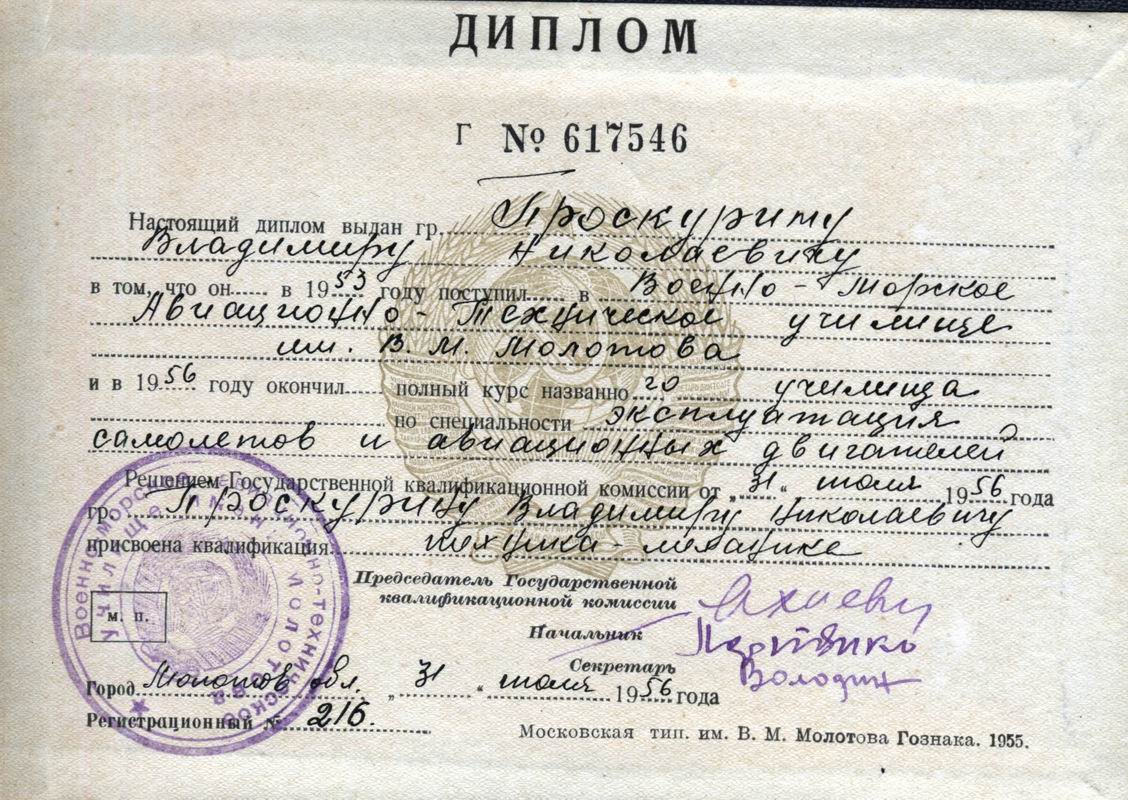 ДИПЛОМ
Г № 617546
Настоящий диплом выдан гр. Проскурину
Владимиру Николаевичу
в том, что он в 1953 году поступил в Военно-Морское
Авиационно-Техническое училище
им. В. М. Молотова
и в 1956 году окончил полный курс названного училища
по специальности эксплуатация
самолетов и авиационных двигателей
Решением Государственной квалификационной комиссии от „31“ июля 1956 года
гр. Проскурину Владимиру Николаевичу
присвоена квалификация техника-механика
Председатель Государственной
квалификационной комиссии
Начальник
Секретарь Володин
М. П.
Город Молотов обл. „31“ июля 1956 года
Регистрационный № 216.
Московская тип. им. В. М. Молотова Гознака. 1955.